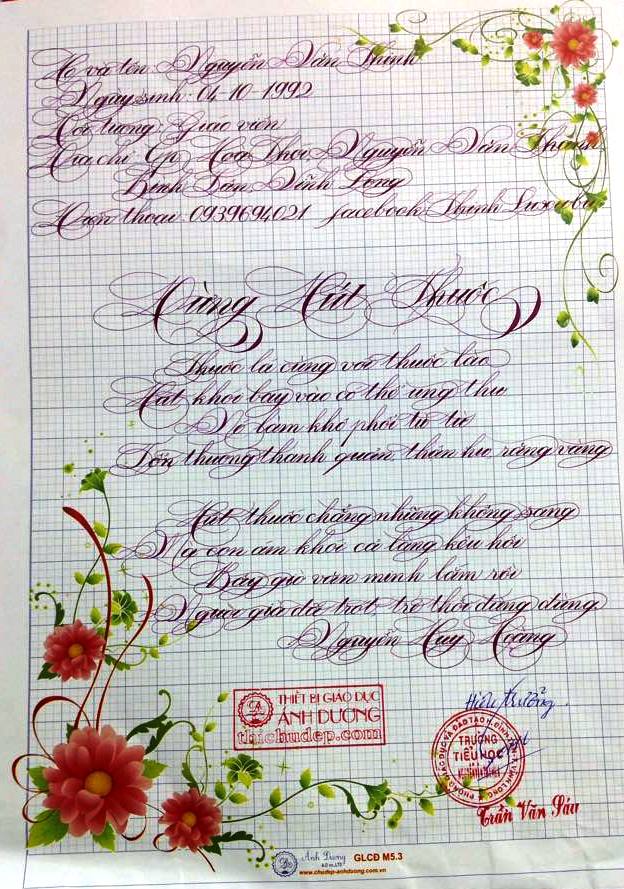 Họ và tên: Nguyễn Văn Thinh
Ngày sinh: 04-10-1992
Đối tượng: Giáo viên
Địa chỉ: Nguyễn Văn Thảnh
Bình Tân Vĩnh Long
Điện thoại: 0939694021 facebook: Thinh
Đừng Hút Thuốc
Thuốc lá cùng với thuốc lào
Hút khói bay vào có thể ung thư
Nó làm khô phổi từ từ
Tổn thương thanh quản thân hư răng vàng
Hút thuốc chẳng những không sang
Mà còn ám khói cả làng kêu hôi
Bây giờ văn minh lắm rồi
Người già đã trót, trẻ thời đừng dùng
Nguyễn Huy Hoàng
THIẾT BỊ GIÁO DỤC
ÁNH DƯƠNG
thichudep.com
Hiệu trưởng
TRƯỜNG
TIỂU HỌC
Trần Văn Sáu
Ánh Dương
GLCĐ M5.3
www.chudep-anhduong.com.vn